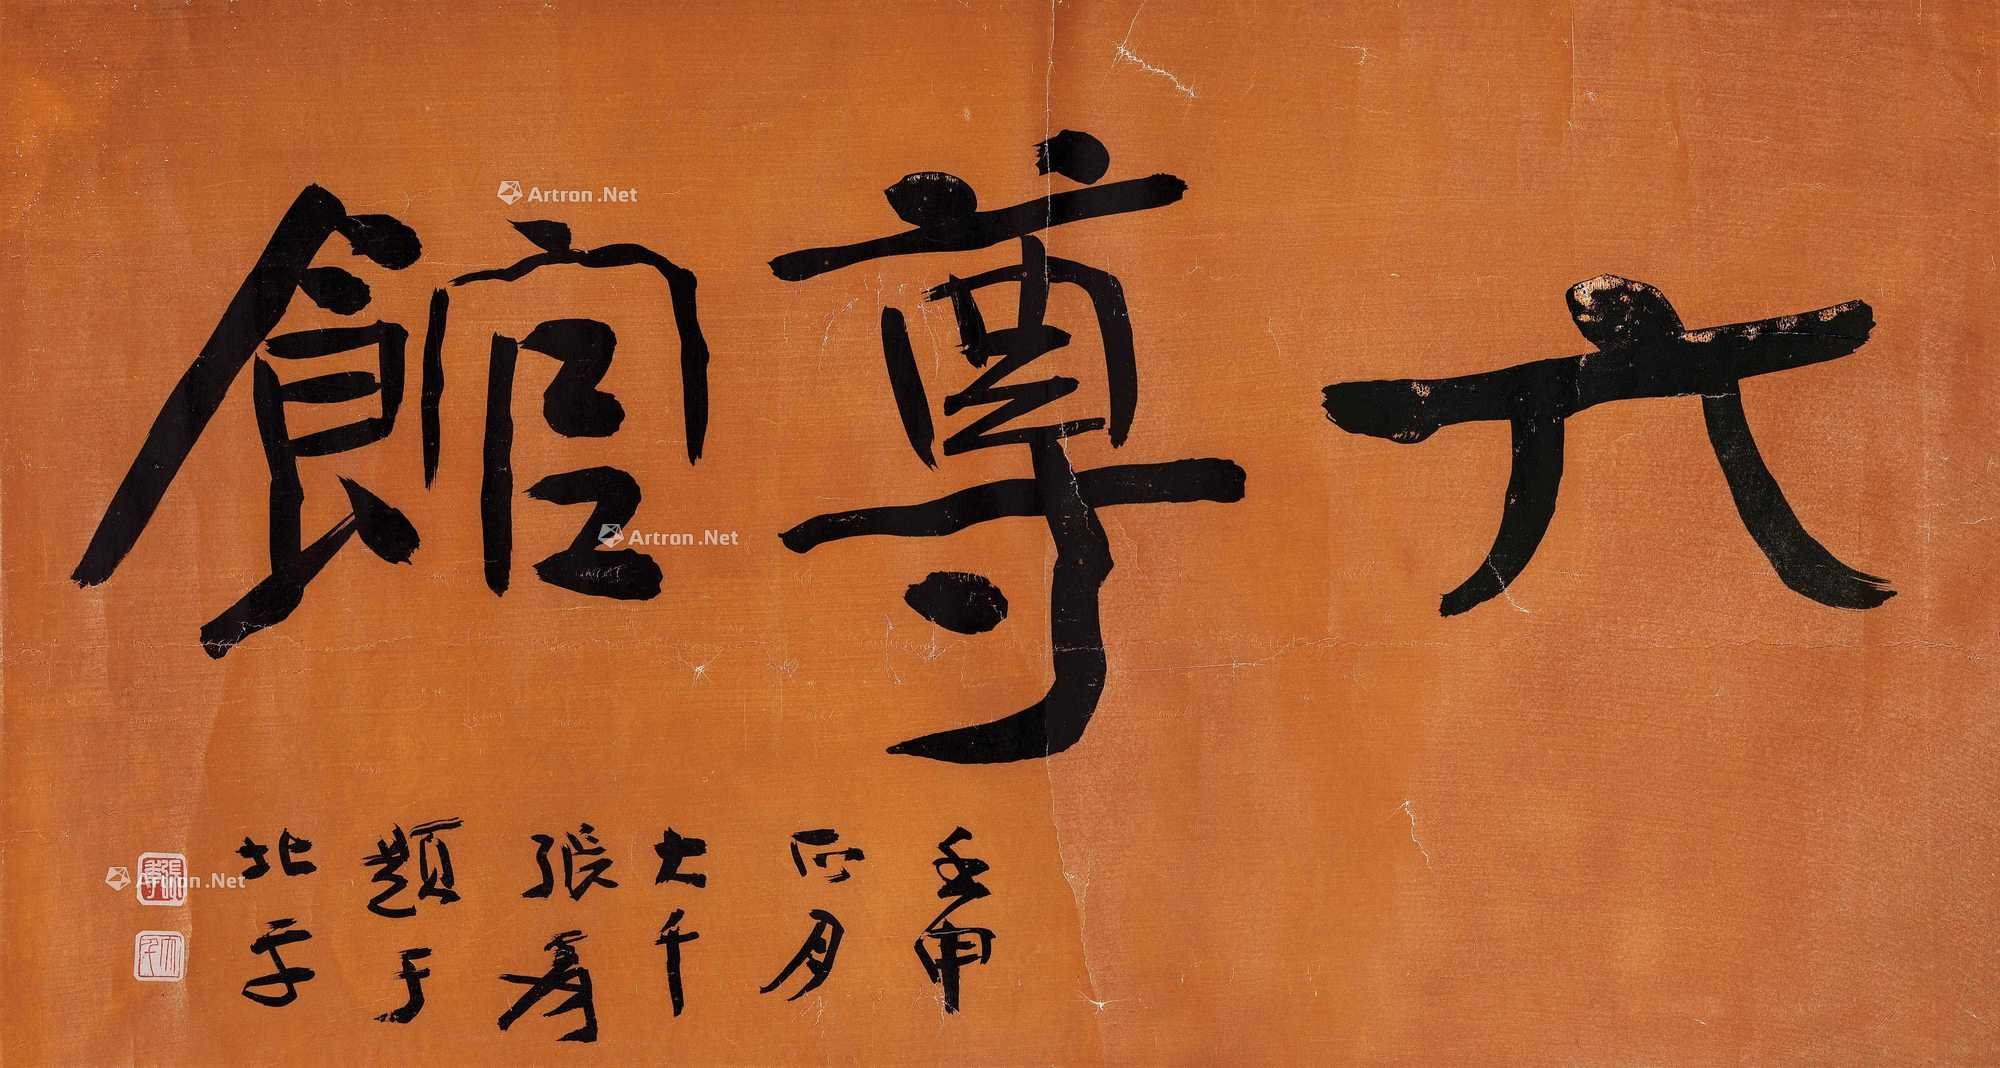 六尊館
壬申
正月
大千
張爰
題于
北平
張季
大千
Artron.Net
Artron.Net
Artron.Net